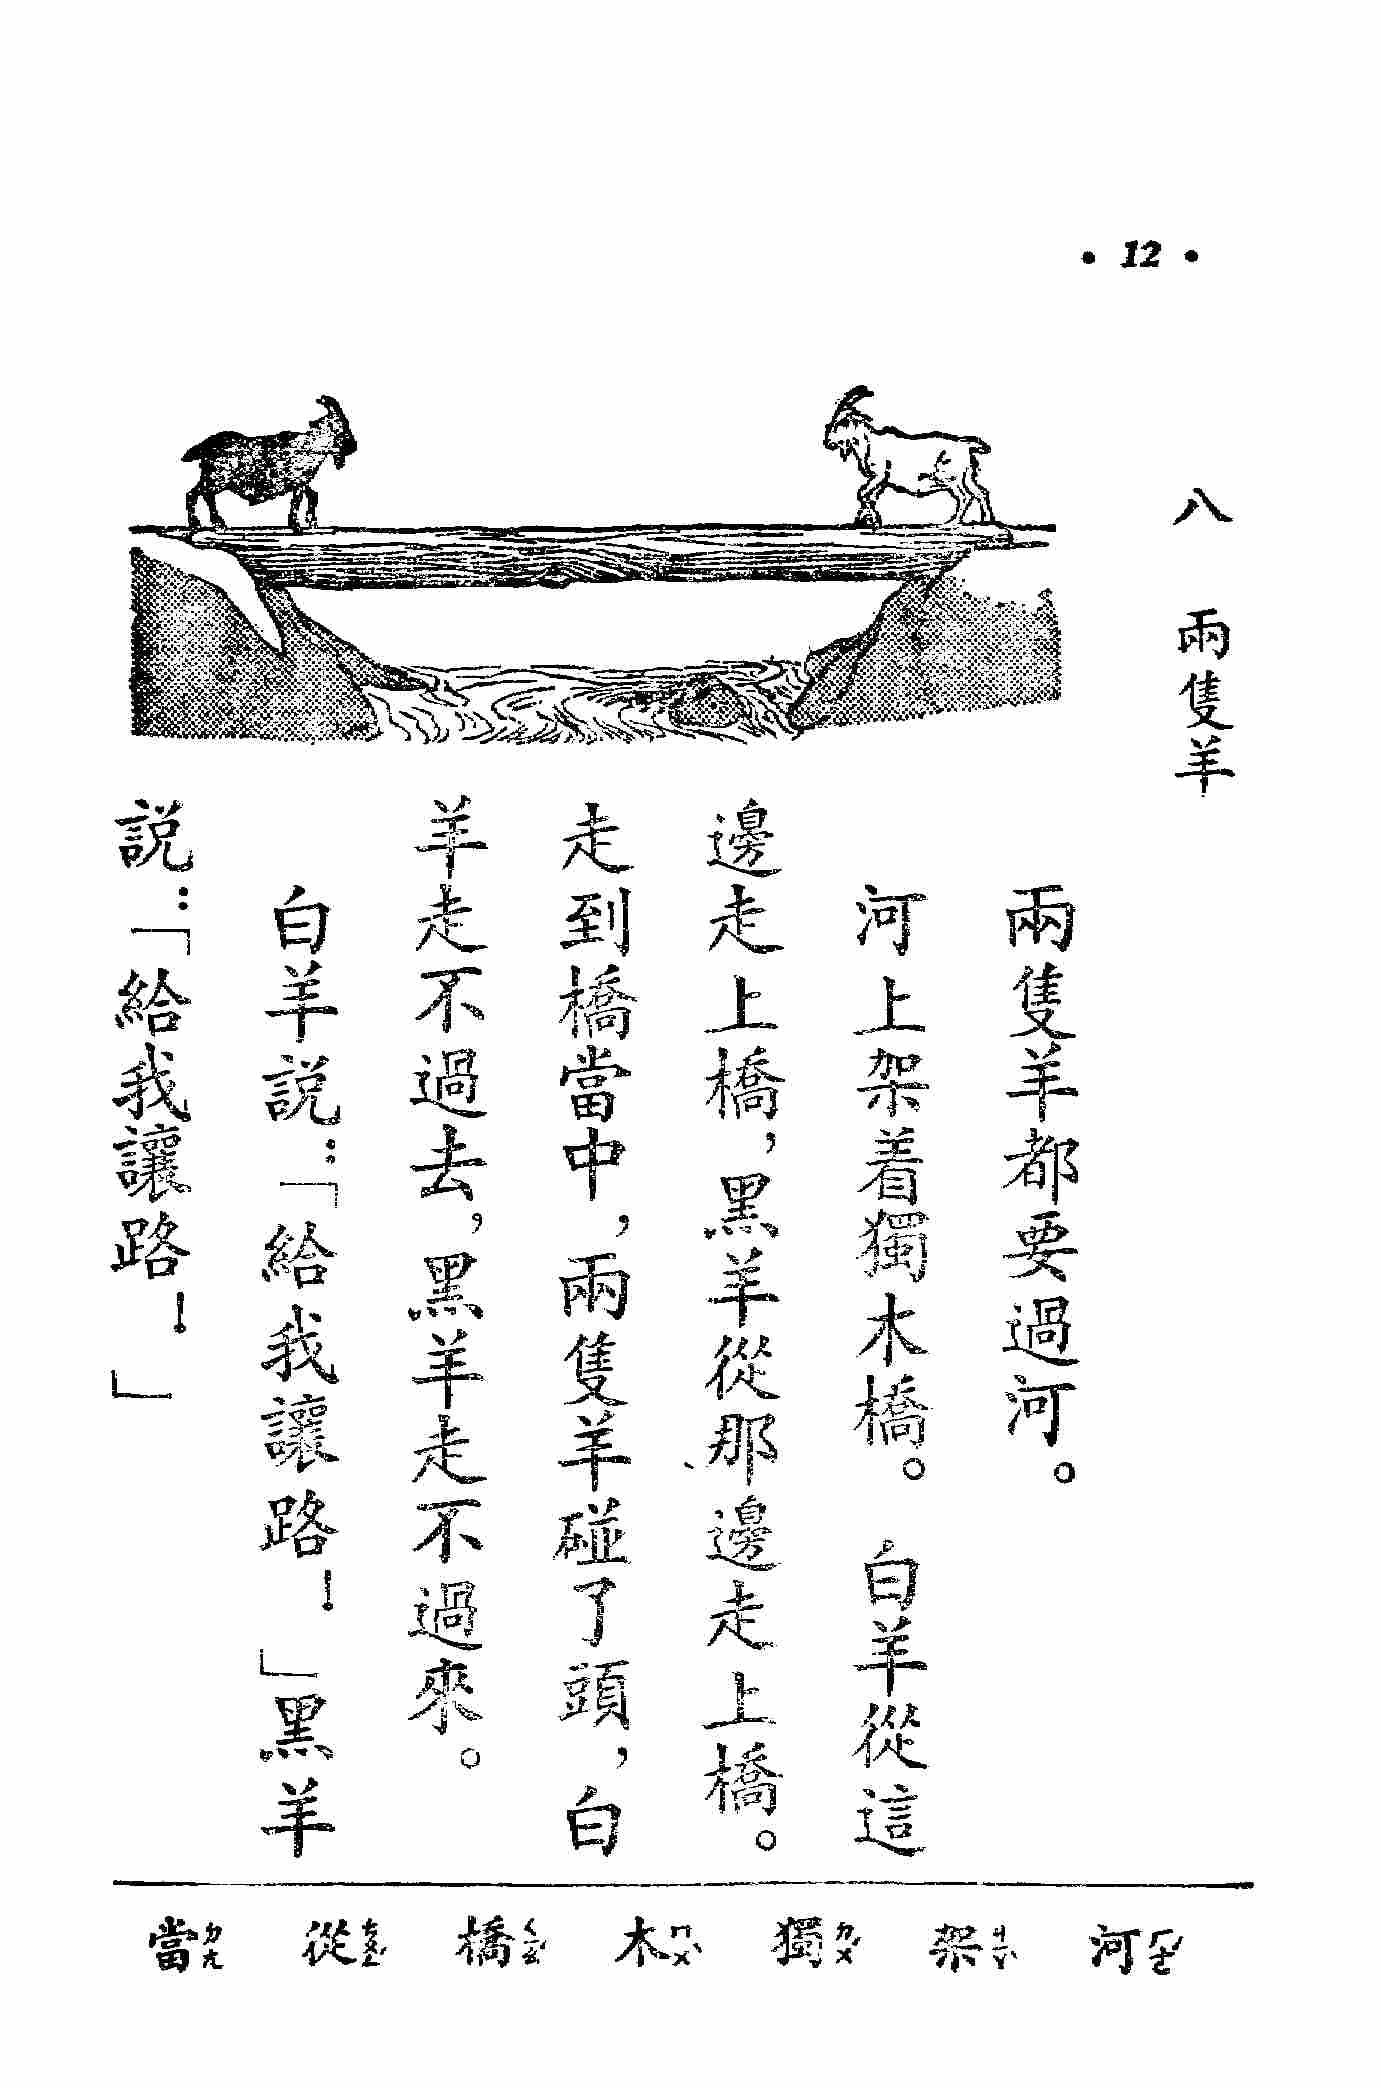 • 12 •
八 兩隻羊
兩隻羊都要過河。
河上架着獨木橋。 白羊從這
邊走上橋，黑羊從那邊走上橋。
走到橋當中，兩隻羊碰了頭，白
羊走不過去，黑羊走不過來。
白羊説：「給我讓路！」黑羊
説：「給我讓路！」
河ㄏㄜˊ 架ㄐㄧㄚˋ 獨ㄉㄨˊ 木ㄇㄨˋ 橋ㄑㄧㄠˊ 從ㄘㄨㄥˊ 當ㄉㄤ